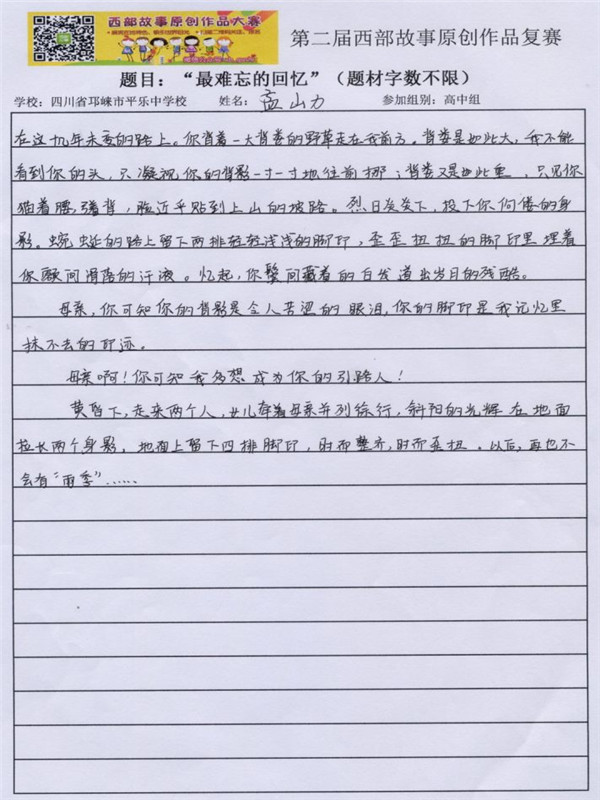 西部故事原创作品大赛
第二届西部故事原创作品复赛
题目：“最难忘的回忆”（题材字数不限）
学校：四川省邛崃市平乐中学校 姓名：孟山力 参加组别：高中组
在这九年未变的路上。你背着一大背篓的野草走在我前方。背篓是如此大，我不能
看到你的头，只凝视你的背影一寸一寸地往前挪；背篓又是如此重，只见你
猫着腰，弯着背，脸近乎贴到上山的坡路。烈日炎炎下，投下你佝偻的身
影。蜿蜒的路上留下两排轻轻浅浅的脚印，歪歪扭扭的脚印里埋着
你颐间滑落的汗液。忆起，你鬓间藏着的白发道出岁月的残酷。
母亲，你可知你的背影是令人苦涩的眼泪，你的脚印是我记忆里
抹不去的印迹。
母亲啊！你可知我多想成为你的引路人！
黄昏下，走来两个人，女儿牵着母亲并列徐行，斜阳的光辉在地面
拉长两个身影。地面上留下四排脚印，时而整齐，时而歪扭。以后，再也不
会有“雨季”……